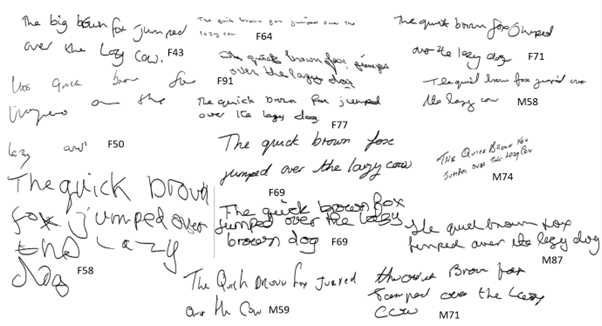 The big brown fox jumped
over the lazy cow.
F43
The quick brown fox jumped over the
lazy cow
F64
The quick brown fox jumped
over the lazy dog
F71
The quick brown fox jumps
over the lazy dog
F91
quick brown
on the
lazy
F50
The quick brown fox jumped
over the lazy dog
F77
The quick brown fox jumped over
the lazy cow
M58
The quick brown fox
jumped over the lazy cow
F69
The Quick Brown Fox
Jumped over the Lazy Cow
M74
The quick brown
fox jumped over
the Lazy
dog
F58
The quick brown fox
jumped over the lazy
brown dog
F69
the quick brown fox
jumped over the lazy dog
M87
The Quick Brown Fox Jumped
over the Cow
M59
Brown fox
Jumped over the Lazy
Cow
M71